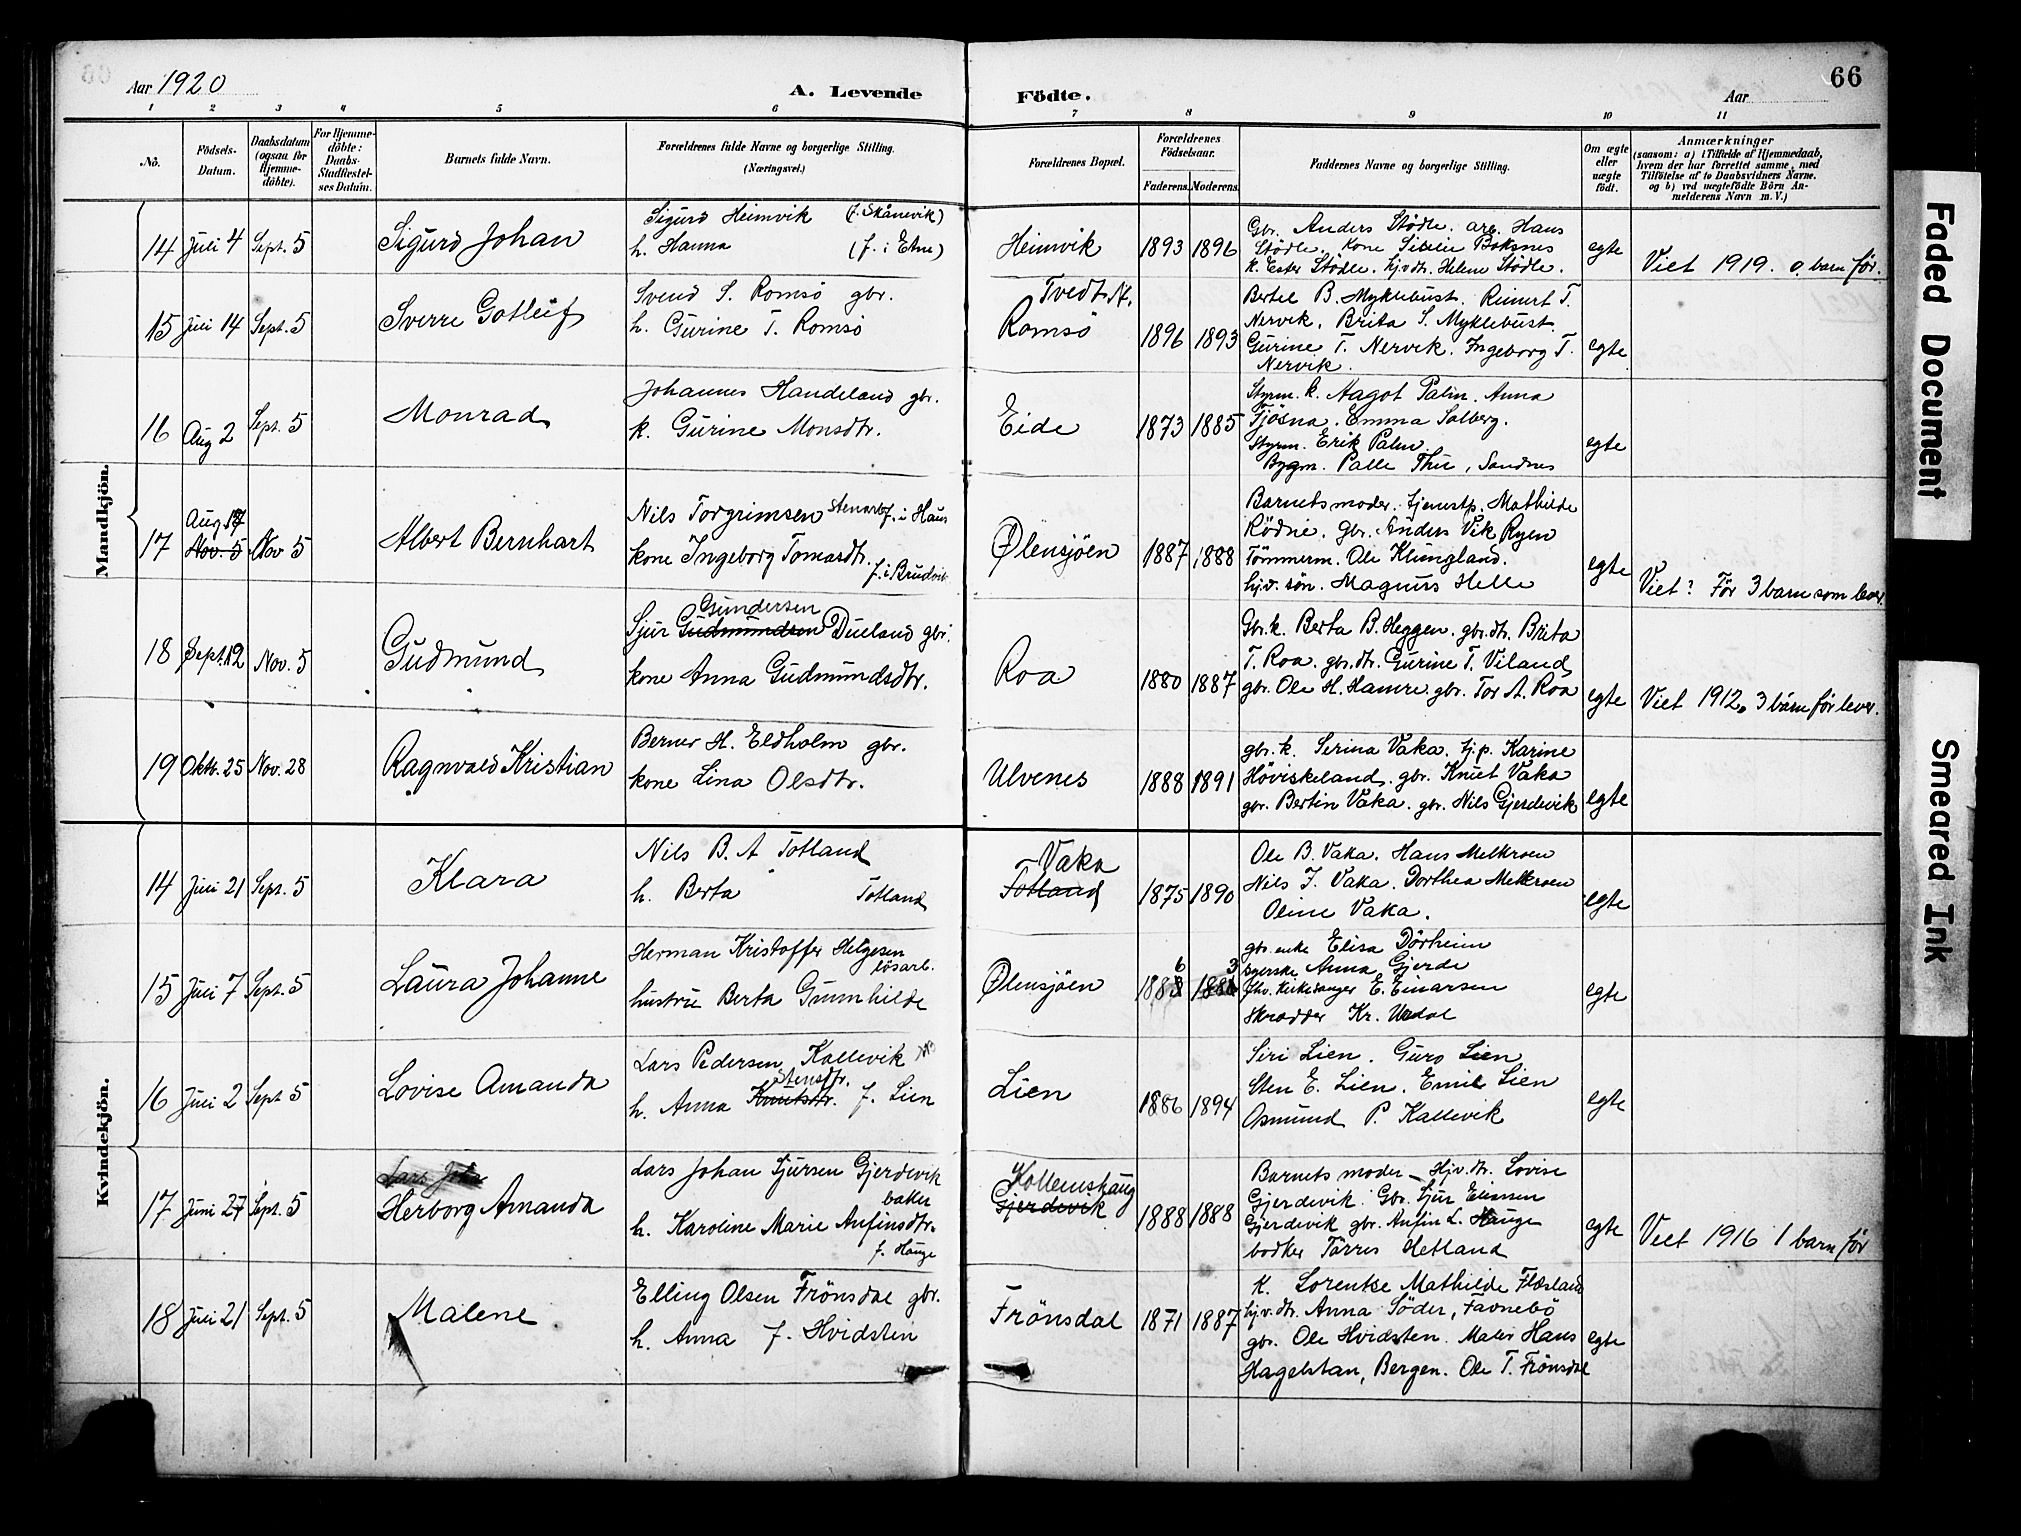 Aar 1920
A. Levende
Födte.
Aar
66
1 2 3 4 5 6 7 8 9 10 11
No.
Födsels-
Datum.
Daabsdatum
(ogsaa for
Hjemme-
döbte).
For Hjemme-
döbte:
Daabs-
Stadfæstel-
ses Datum.
Barnets fulde Navn.
Forældrenes fulde Navne og borgerlige Stilling.
(Næringsvei.)
Forældrenes Bopæl.
Forældrenes
Födselsaar.
Faderens. Moderens.
Faddernes Navne og borgerlige Stilling.
Om ægte
eller
uægte
födt.
Anmærkninger
(saasom: a) i Tilfælde af Hjemmedaab,
hvem der har forrettet samme, med
Tilföielse af to Daabsvidners Navne,
og b) ved uægtefödte Börn An-
melderens Navn m.V.)
Mandkjön.
14 Juli 4 Sept. 5 Sigurd Johan
Sigurd Heimvik (f. Skånevik)
h. Hanna (f. i Etne)
Heimvik 1893 1896
Gbr. Anders Stödle. arb. Hans
Stödle. Kone Baksnes
k. Ester Stödle. hjv.dtr. Helene Stödle.
egte
Viet 1919. 0 barn før.
15 Juli 14 Sept. 5 Sverre Gotleif
Svend S. Romsö gbr.
h. Gurine T. Romsö
Tvedt. N.
Romsö
1896 1893
Bertel B. Myklebust. Reinert T.
Nervik. Brita S. Myklebust.
Gurine T. Nervik. Ingeborg T.
Nervik.
egte
16 Aug 2 Sept. 5 Monrad
Johannes Handeland gbr.
k. Gurine Monsdtr.
Eide 1873 1885
Styrm. k. Aagot Palm. Anna
Tjösna. Emma Solberg.
Styrm. Erik Palm.
Bygm. Palle Thu, Sandnes
egte
17 Aug 17
Nov. 5 Nov 5 Albert Bernhart
Nils Torgrimsen Stenarb. f. i Haus
kone Ingeborg Tomasdtr.
f. i Bruvik
Ølensjöen 1887 1888
Barnets moder. tjenestp. Mathilde
Rödne. Gbr. Anders Vik Ryen
Tömmerm. Ole Klungland.
hjv. sön. Magnus Helle
egte
Viet? Før 3 barn som lever.
18 Sept. 12 Nov. 5 Gudmund
Gundersen
Sjur Gudmundsen Dueland gbr.
kone Anna Gudmundsdtr.
Roa 1880 1887
Gbr. k. Berta B. Heggen. gbr. dtr. Brita
T. Roa. gbr. dtr. Gurine T. Viland
gbr. Ole H. Hamre. gbr. Tor A. Roa
egte
Viet 1912. 3 barn før lever.
19 Oktb. 25 Nov. 28 Ragnvald Kristian
Berner H. Eldholm gbr.
kone Lina Olsdtr.
Ulvenes 1888 1891
gbr. k. Serina Vaka. tj.p. Karine
Höviskeland. gbr. Knut Vaka
gbr. Bertin Vaka. gbr. Nils Gjerdevik
egte
Kvindekjön.
14 Juli 21 Sept. 5 Klara
Nils B. A Totland
h. Berta Totland
Vaka
Totland
1875 1890
Ole B. Vaka. Hans Melkroen
Nils J. Vaka. Dorthea Melkroen
Oline Vaka.
egte
15 Juli 7 Sept. 5 Laura Johanne
Herman Kristoffer Helgesen
lösarb.
hustru Berta Gunnhilde
Ølensjöen
6 3
1883 1886
gbr. enke Elisa Dörheim
syerske Anna Gjerde
fhv. kirkesanger E. Einarsen
skrædder Kr. Urdal
egte
16 Juli 2 Sept 5 Lovise Amanda
Lars Pedersen Kallevik
Stensdtr.
h. Anna Knutsdtr. f. Lien
Lien 1886 1894
Siri Lien. Guro Lien
Sten E. Lien. Emil Lien
Osmund P. Kallevik
egte
17 Juni 27 Sept. 5
Lars Joha
Herborg Amanda
Lars Johan Sjursen Gjerdevik
baker
h. Karoline Marie Anfinsdtr.
f. Hauge
Kollemshaug
Gjerdevik
1888 1888
Barnets moder – Hjv. dtr. Lovise
Gjerdevik. Gbr. Sjur Elissen
Gjerdevik gbr. Anfin L. Hauge
bødker Tørres Hetland
egte
Viet 1916 1 barn før
18 Juli 21 Sept. 5 Malene
Elling Olsen Frönsdal gbr.
h. Anna f. Hvidsten
Frönsdal 1871 1887
K. Lorentse Mathilde Flæsland
hjv. dtr. Anna Söder, Favnebö
gbr. Ole Hvidsten. Maler Hans
Hagelstan, Bergen. Ole T. Frönsdal
egte
Faded Document
Smeared Ink